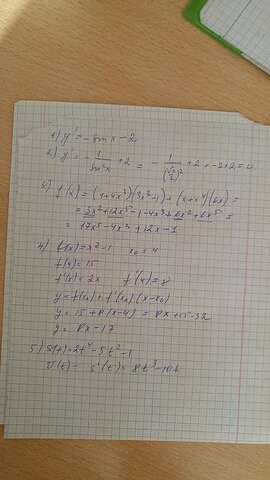 1) y' = -sin x - 2
2) y' = - 1/sin²x + 2 = - 1/(√2/2)² + 2 = -2+2 = 0
3) f'(x) = (1+4x³)(3x²-1) + (x+x⁴)(6x) =
= 3x²+12x⁵-1-4x³+6x²+6x⁵ =
= 17x⁵-4x³+12x-1
4) f(x) = x²-1 x₀ = 4
f(4) = 15
f'(x) = 2x f'(4) = 8
y = f(x₀) + f'(x₀)(x-x₀)
y = 15 + 8(x-4) = 8x+15-32
y = 8x-17
5) S(t) = 2t⁴-5t²-1
V(t) = S'(t) = 8t³-10t